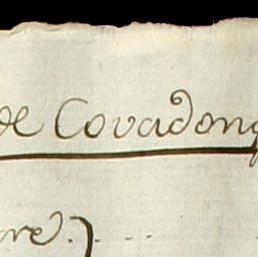 de Covadong
are).